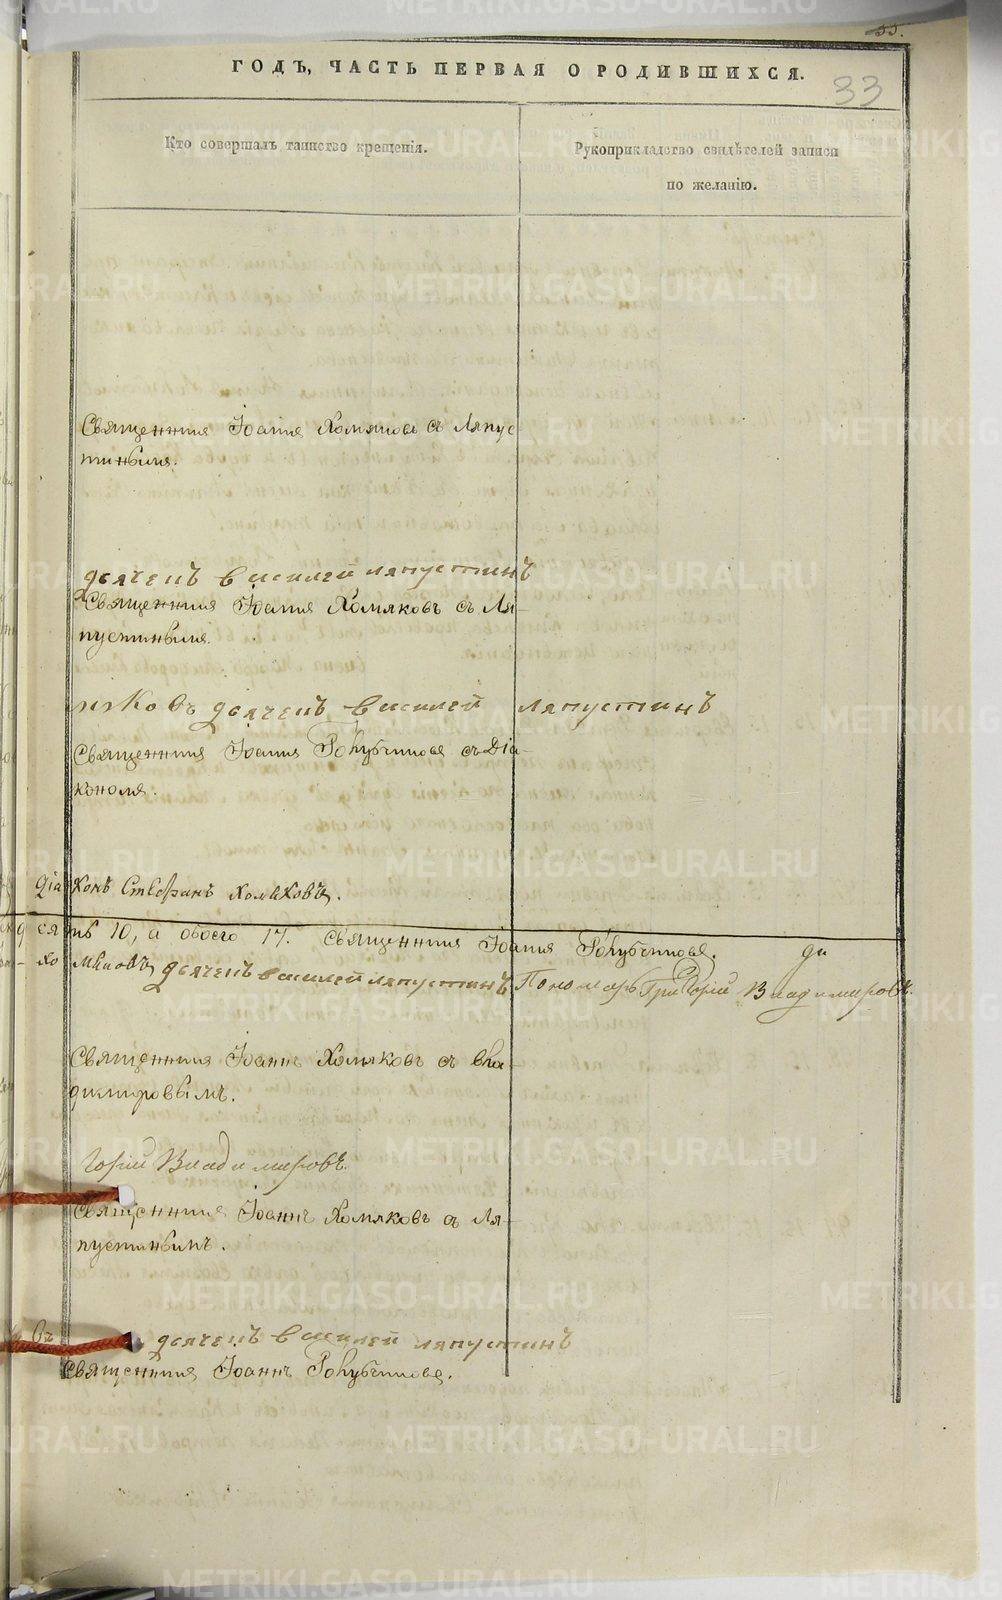 55.
ГОДЪ, ЧАСТЬ ПЕРВАЯ О РОДИВШИХСЯ.
33
Кто совершалъ таинство крещенія.
Рукоприкладство свидѣтелей записи
по желанію.
Священникъ Іоаннъ Хомяковъ съ Ляпус-
тинымъ.
дьячекъ Василей Ляпустинъ
Священникъ Іоаннъ Хомяковъ съ Ля-
пустинымъ.
яковъ дьячекъ Василей Ляпустинъ
Священникъ Іоаннъ Голубчиковъ съ Діа-
кономъ.
Діаконъ Стефанъ Хомяковъ.
10, а обоего 17. Священникъ Іоаннъ Голубчиковъ. Ді
Хомяковъ, дьячекъ Василей Ляпустинъ Пономарь Григорій Владимировъ.
Священникъ Іоаннъ Хомяковъ съ Вла-
димировымъ.
горій Владимировъ.
Священникъ Іоаннъ Хомяковъ съ Ля-
пустинымъ.
въ дьячекъ Василей Ляпустинъ
Священникъ Іоаннъ Голубчиковъ.
METRIKI.GASO-URAL.RU